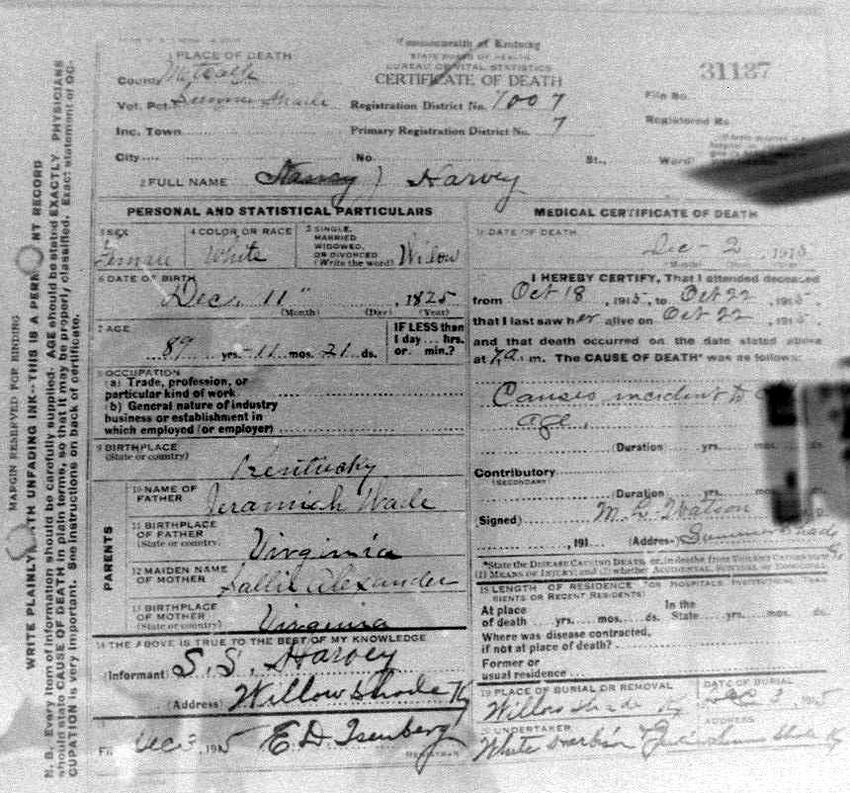 Commonwealth of Kentucky
STATE BOARD OF HEALTH
BUREAU OF VITAL STATISTICS
CERTIFICATE OF DEATH
31137
1 PLACE OF DEATH
County Metcalfe
Vot. Pct. Summer Shade
Inc. Town
City
Registration District No. 1007
Primary Registration District No. 7
No.
St.,
Ward
File No.
Registered No
2 FULL NAME Harvey
PERSONAL AND STATISTICAL PARTICULARS
3 SEX
Female
4 COLOR OR RACE
White
5 SINGLE,
MARRIED
WIDOWED,
OR DIVORCED
(Write the word)
Widow
6 DATE OF BIRTH
Dec. 11", 1825
(Month) (Day) (Year)
7 AGE
89 yrs. 11 mos. 21 ds.
IF LESS than
1 day... hrs.
or... min.?
8 OCCUPATION
(a) Trade, profession, or
particular kind of work
(b) General nature of industry
business or establishment in
which employed (or employer)
9 BIRTHPLACE
(State or country)
Kentucky
PARENTS
10 NAME OF
FATHER
Jeramiah Wade
11 BIRTHPLACE
OF FATHER
(State or country.
Virginia
12 MAIDEN NAME
OF MOTHER
Sallie Alexander
13 BIRTHPLACE
OF MOTHER
(State or country)
Virginia
14 THE ABOVE IS TRUE TO THE BEST OF MY KNOWLEDGE
(Informant S. S. Harvey
(Address) Willow Shade Ky
15
Dec 3, 1915 E D Isenberg
REGISTRAR
MEDICAL CERTIFICATE OF DEATH
16 DATE OF DEATH
Dec - 2 1915
I HEREBY CERTIFY, That I attended deceased
from Oct 18, 1915, to Oct 22, 1915.
that I last saw her alive on Oct 22, 1915.
and that death occurred on the date stated above
at 7 a.m. The CAUSE OF DEATH* was as follows:
Causes incident to
age.
(Duration) yrs. mos. ds.
Contributory
(SECONDARY)
(Duration) yrs. mos.
(Signed) Watson
, 191 (Address) Summer Shade
*State the DISEASE CAUSING DEATH, or, in deaths from VIOLENT CAUSES, state
(1) MEANS OF INJURY; and (2) whether ACCIDENTAL, SUICIDAL or HOMICIDAL
18 LENGTH OF RESIDENCE (FOR HOSPITALS, INSTITUTIONS, TRANSIENTS
OR RECENT RESIDENTS)
At place
of death yrs. mos. ds.
In the
State yrs. mos.
Where was disease contracted,
if not at place of death?
Former or
usual residence
19 PLACE OF BURIAL OR REMOVAL
Willow Shade Ky
DATE OF BURIAL
Dec 3, 1915
20 UNDERTAKER
White
ADDRESS
MARGIN RESERVED FOR BINDING
WRITE PLAINLY WITH UNFADING INK--THIS IS A PERMANENT RECORD
N. B. Every item of information should be carefully supplied. AGE should be stated EXACTLY. PHYSICIANS
should state CAUSE OF DEATH in plain terms, so that it may be properly classified. Exact statement of OC-
CUPATION is very important. See instructions on back of certificate.